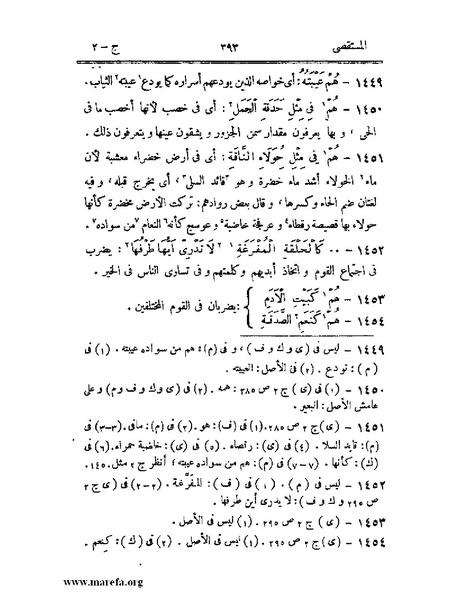 المستقصى ٣٩٣ ج – ٢
١٤٤٩ – هُمْ عَيْبَتُهُ: أى خواصه الذين يودعهم أسراره كما يودع ١ عيبته ٢ الثياب.
١٤٥٠ – هُمْ ١ فِى مِثْلِ حَدَقَةِ الْجَمَلِ ٢: أى فى خصب لأنها أخصب ما فى
الحى، و بها يعرفون مقدار سمن الجزور و يشقون عينها و يتعرفون ذلك.
١٤٥١ – هُمْ ١ فِى مِثْلِ حُوَلَاءِ النَّاقَةِ: أى فى أرض خضراء معشبة لأن
ماء ٢ الحولاء أشد ماء خضرة و هو ٣ قائد السلى ٣، أى يخرج قبله، و فيه
لغتان ضم الحاء وكسرها، و قال بعض روادهم: تركت الأرض مخضرة كأنها
حولاء بها قصيصة رقطاء ٤ و عرفجة خاضبة ٥ و عوسج كأنه ٦ النعام ٧ من سواده ٧.
١٤٥٢ – .. كَالْحَلْقَةِ الْمُفْرَغَةِ ١ ٢ لَا تَدْرِى أَيُّهَا طَرْفُهَا ٢: يضرب
فى اجتماع القوم و اتخاذ أيديهم وكلمتهم و فى تساوى الناس فى الخير.
١٤٥٣ – هُمْ ١ كَبَيْتِ الْأَدَمِ
١٤٥٤ – هُمْ ١ كَنَعَمِ ٢ الصَّدَقَةِ } يضربان فى القوم المختلفين.
١٤٤٩ – ليس فى (ى و ك و ف)، و فى (م): هم من سواده عيبته. (١) فى
(م): تودع. (٢) فى الأصل: العيبته.
١٤٥٠ – (١) فى (ى) ج ٢ ص ٢٨٥: همه. (٢) فى (ى و ك و ف و م) و على
هامش الأصل: البعير.
١٤٥١ – (ى) ج ٢ ص ٢٨٥. (١) فى (ف): هو. (٢) فى (م): مافى. (٣–٣) فى
(م): قايد السلا. (٤) فى (ى): رقصاء. (٥) فى (ى): خاضبة حمراء. (٦) فى
(ك): كأنها. (٧–٧) فى (م): هم من سواده عيبته؛ أنظر ج ٢ مثل ١٤٥.
١٤٥٢ – ليس فى (م). (١) فى (ف): المفرّغة. (٢–٢) فى (ى ج ٢
ص ٢٩٥ و ك و ف): لا يدرى أين طرفها.
١٤٥٣ – (ى) ج ٢ ص ٢٩٥. (١) ليس فى الأصل.
١٤٥٤ – (ى) ج ٢ ص ٢٩٥. (١) ليس فى الأصل. (٢) فى (ك): كنعم.
www.marefa.org